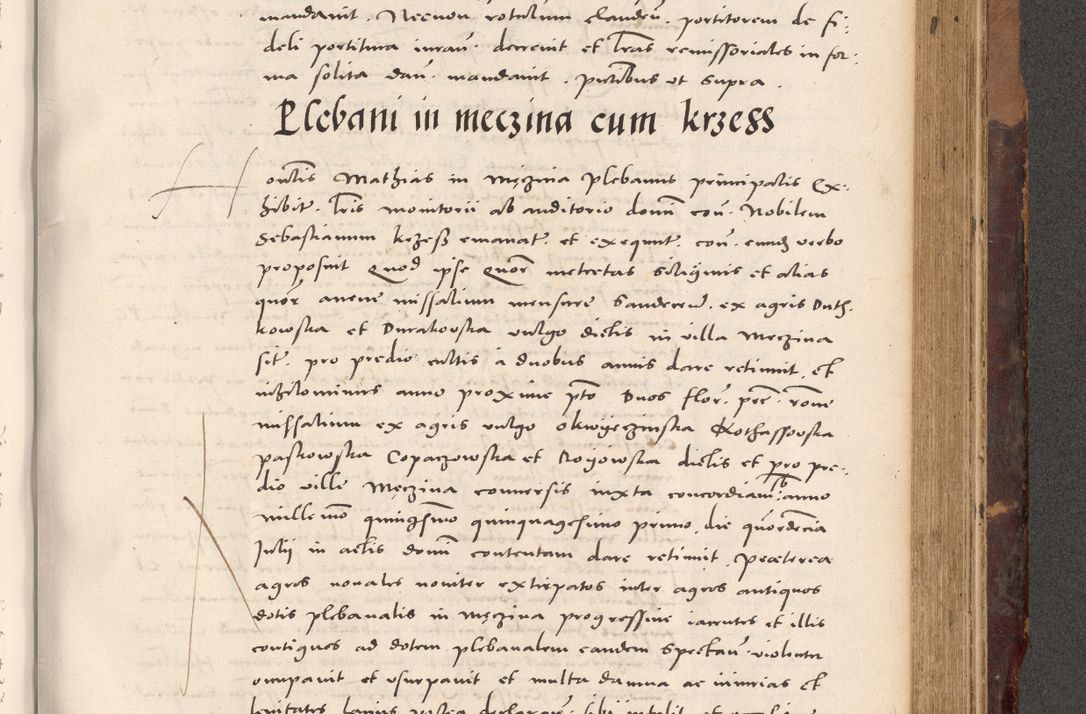 mandavit. Necnon rotulum clauden. portitorem de fi:
deli portitura iurav. decrevit et lras remissoriales in for:
ma solita dan. mandavit. pntibus ut supra.
Plebani in meczina cum krzess
Mathias in Męczina Plebanus principalis Ex:
hibit. lris monitorii ab auditorio domi con. Nobilem
Sebastianum krzess emanat. et exequut. con. eundem verbo
proposuit Quod ipse Quor metretas siliginis et alias
quor avene missalium mensure Sandecien. ex agris Duth
kowska et Durakowska vulgo dictis in villa Meczina
sit. pro predio cultis a duobus annis dare retinuit, et
nihilominus anno proxime pto Duos flor. pre. rone
missalium ex agris vulgo okwyeczinska Rothassowska
paskowska Copaczowska et Royowska dictis et pro pre:
dio ville Męczina conversis iuxta concordiam sb anno
millemo quingsimo quinquagesimo primo, die quordecia
Julii in actis domi contentam dare retinuit. Preaterea
agros novales noviter extirpatos inter agros antiquos
dotis plebanalis in Męczina progressive iacentes et illis
contiguos ad dotem plebanalem eandem spectan. violenter
occupavit et usurpavit et multa damna ac iniurias et